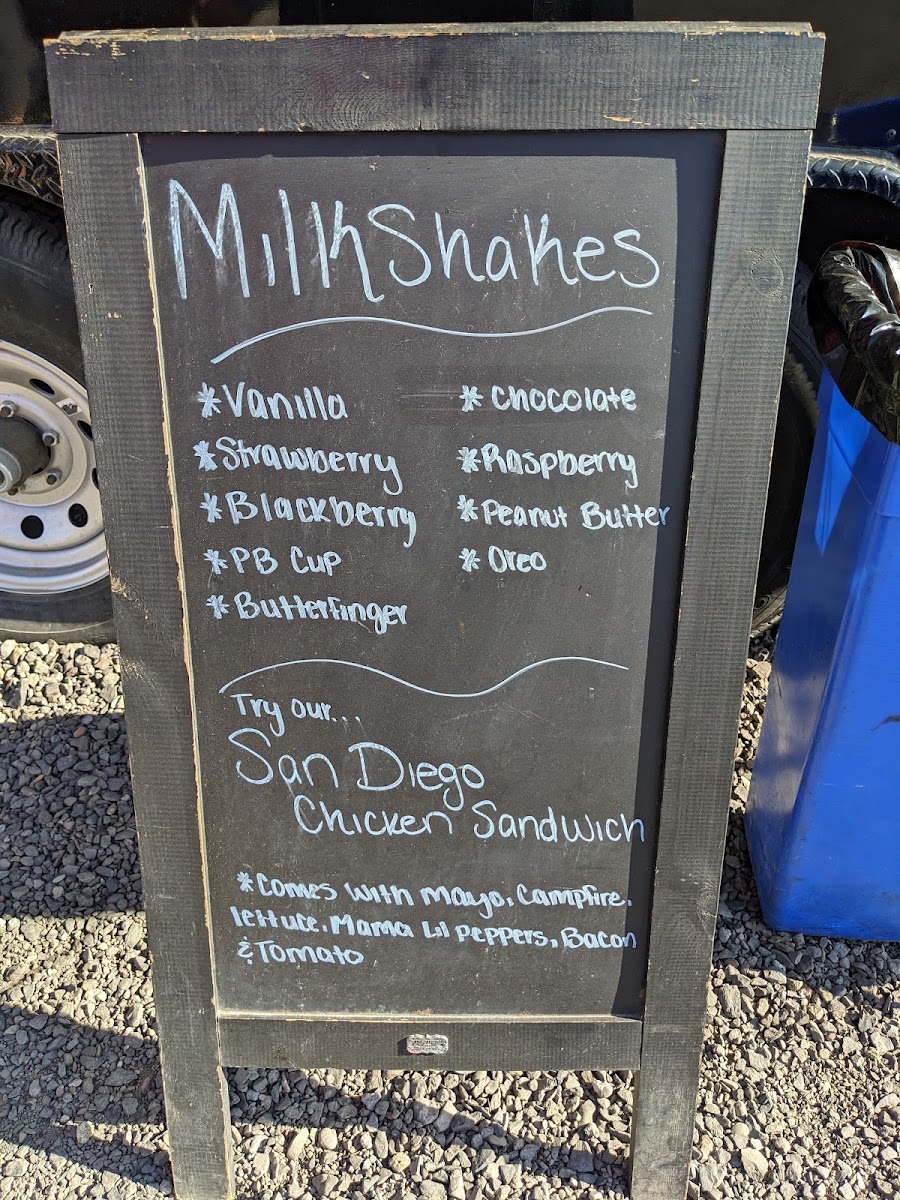 MilkShakes
*Vanilla
*Chocolate
*Strawberry
*Raspberry
*Blackberry
*Peanut Butter
*PB Cup
*Oreo
*Butterfinger
Try our...
San Diego
Chicken Sandwich
*Comes with mayo, Campfire,
lettuce, Mama Lil peppers, Bacon
& Tomato